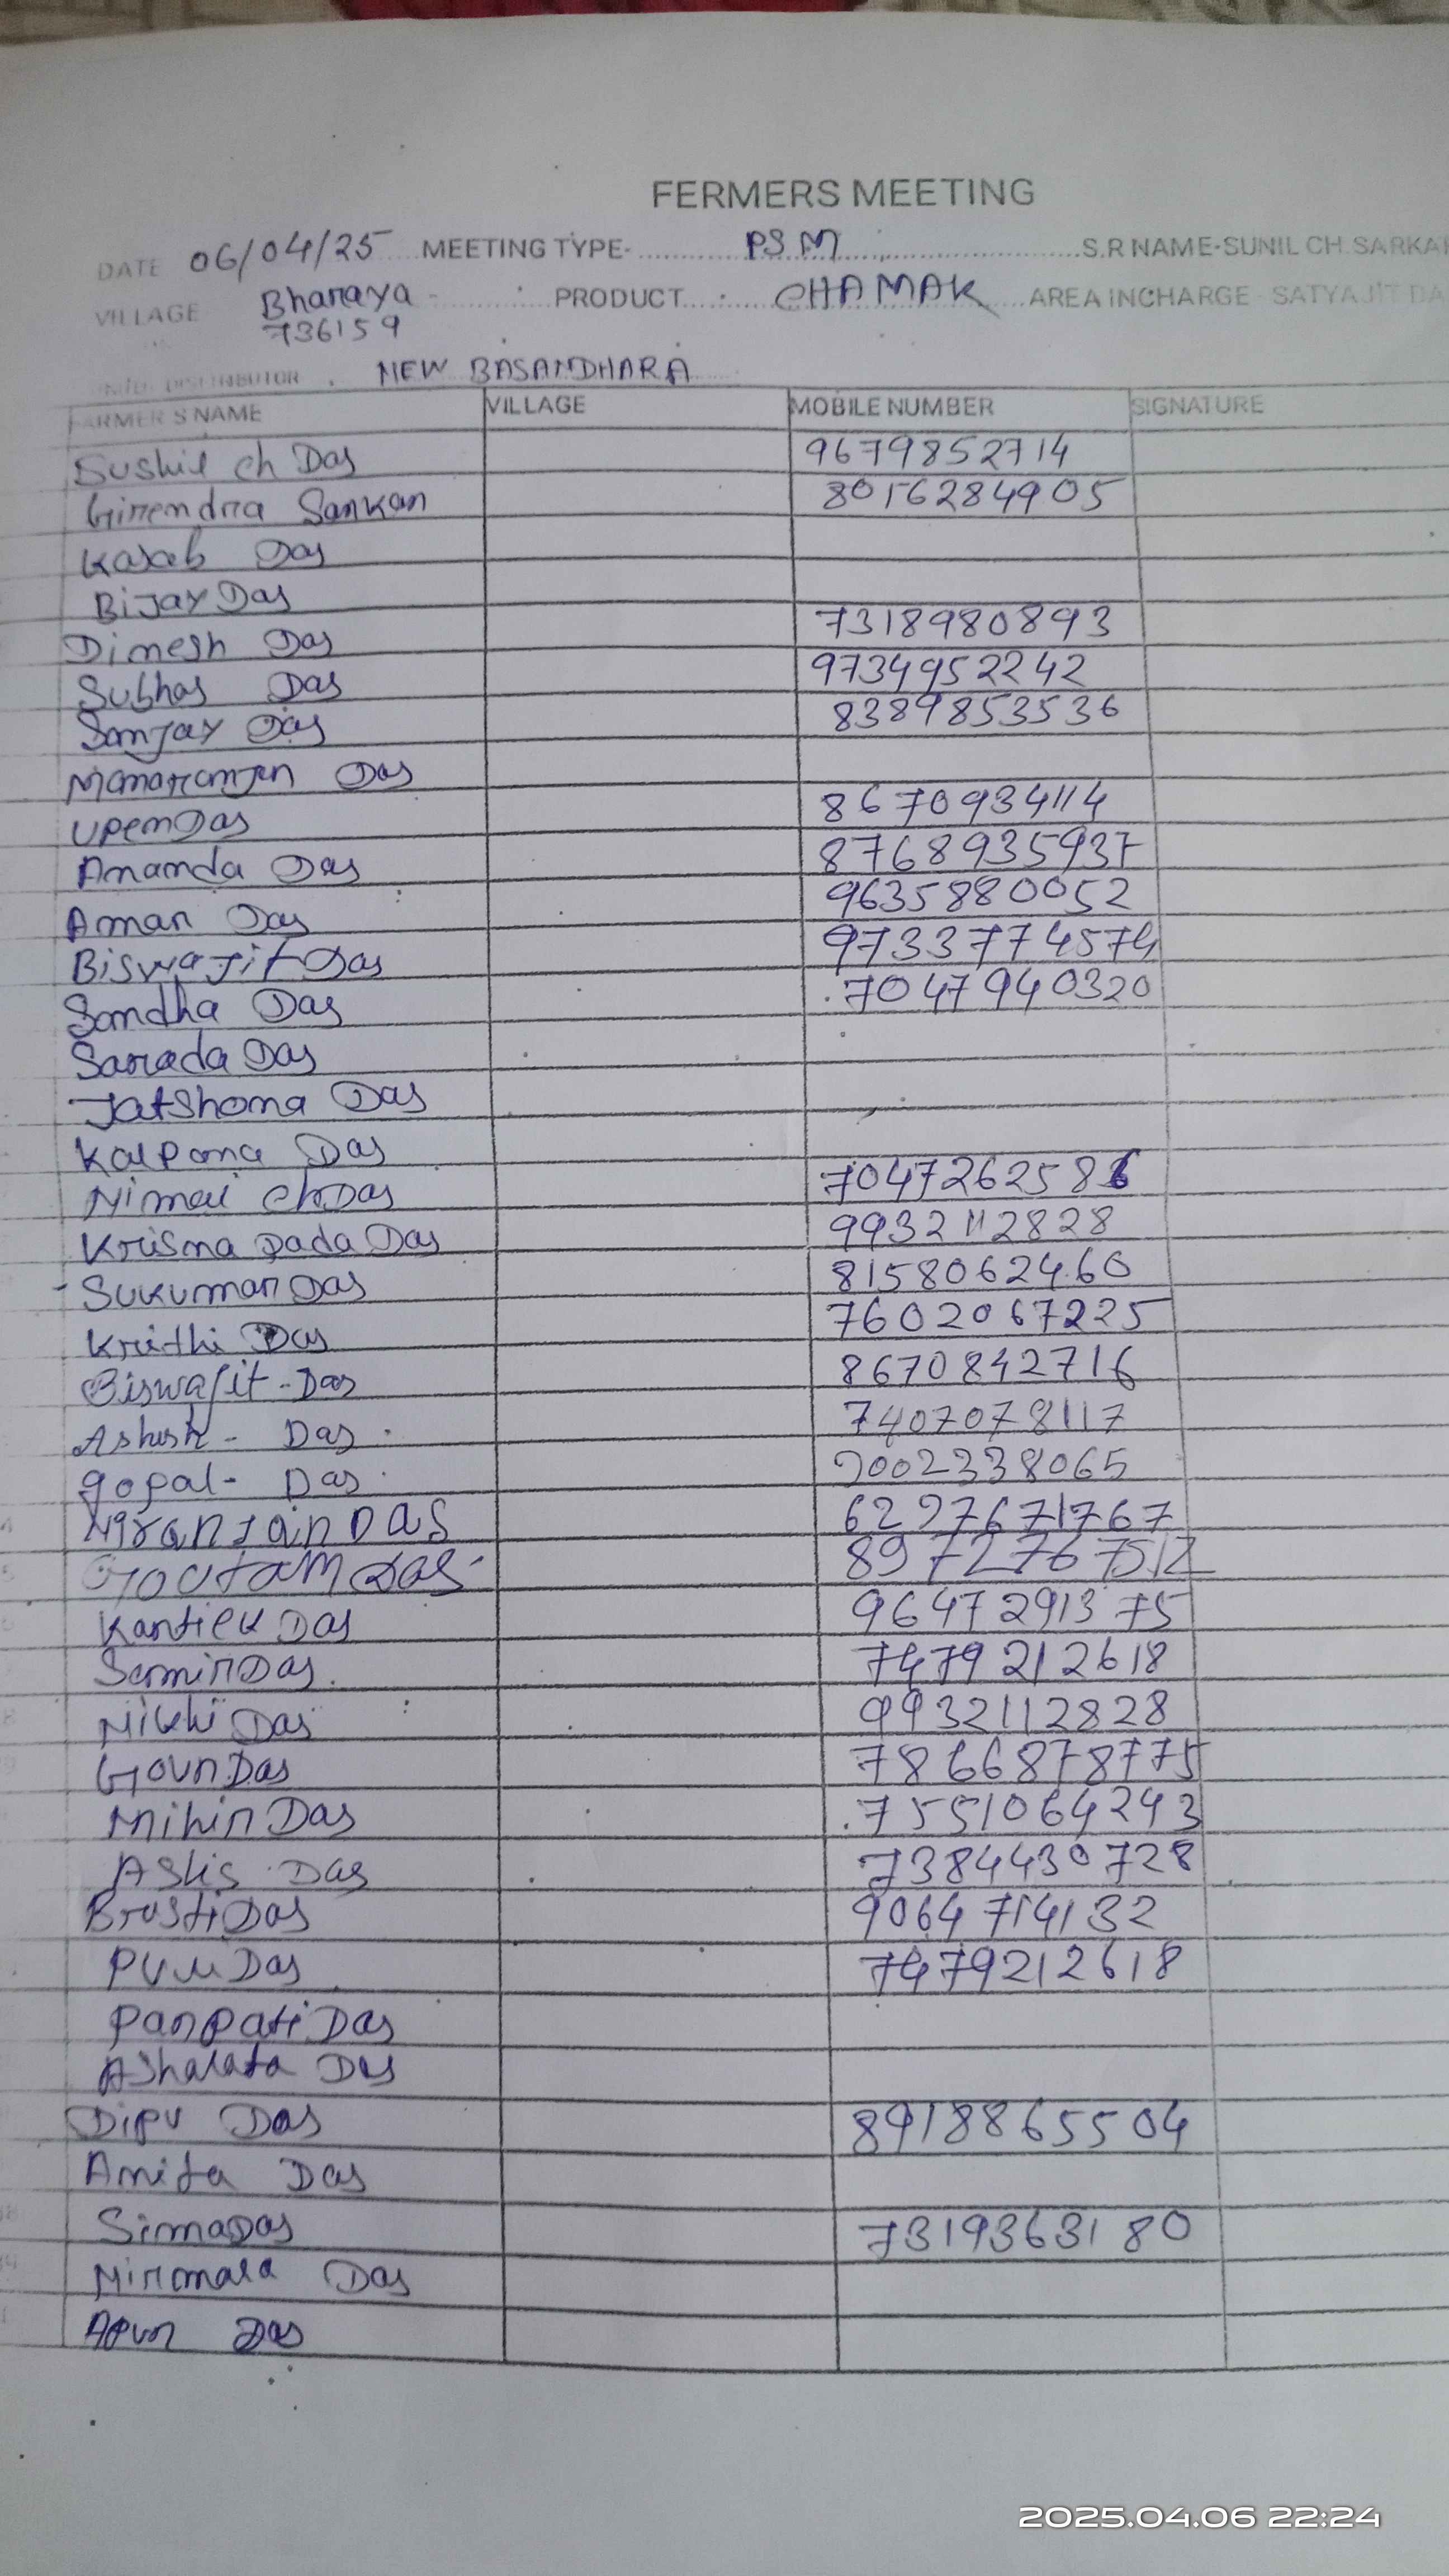 FERMERS MEETING
DATE 06/04/25 MEETING TYPE- PSM S.R NAME-SUNIL CH. SARKAR
VILLAGE Bharaya PRODUCT CHAMAK AREA INCHARGE - SATYAJIT DA
736159
DISTRIBUTOR . NEW BASANDHARA
FARMER S NAME VILLAGE MOBILE NUMBER SIGNATURE
Sushil ch Das 9679852714
Girendra Sarkar 8016284905
Kasab Das
Bijay Das
Dinesh Das 7318980893
Subhas Das 9734952242
Sanjay Das 8389853536
Manaranjan Das
Upen Das 8670934114
Ananda Das 8768935937
Amar Das 9635880052
Biswajit Das 9733774574
Sandha Das 7047940320
Sarada Das
Jatshona Das
Kalpana Das
Nimai ch Das 7047262586
Krisna pada Das 9932112828
Sukumar Das 8158062460
Krithi Das 7602067225
Biswajit - Das 8670842716
Ashish - Das 7407078117
gopal - Das 9002338065
Niranjan DaS 6297671767
GOUtam Das 8972767512
Kartiek Das 9647291375
Samir Das 7479212618
Nikhi Das 9932112828
Gour Das 7866878775
Mihir Das 7551064243
Aslis Das 7384430728
Brusti Das 9064714132
Das 7479212618
Parpati Das
Ashalata Das
Dipu Das 8918865504
Amita Das
Sima Das 7319363180
Nirmala Das
Apur Das
2025.04.06 22:24